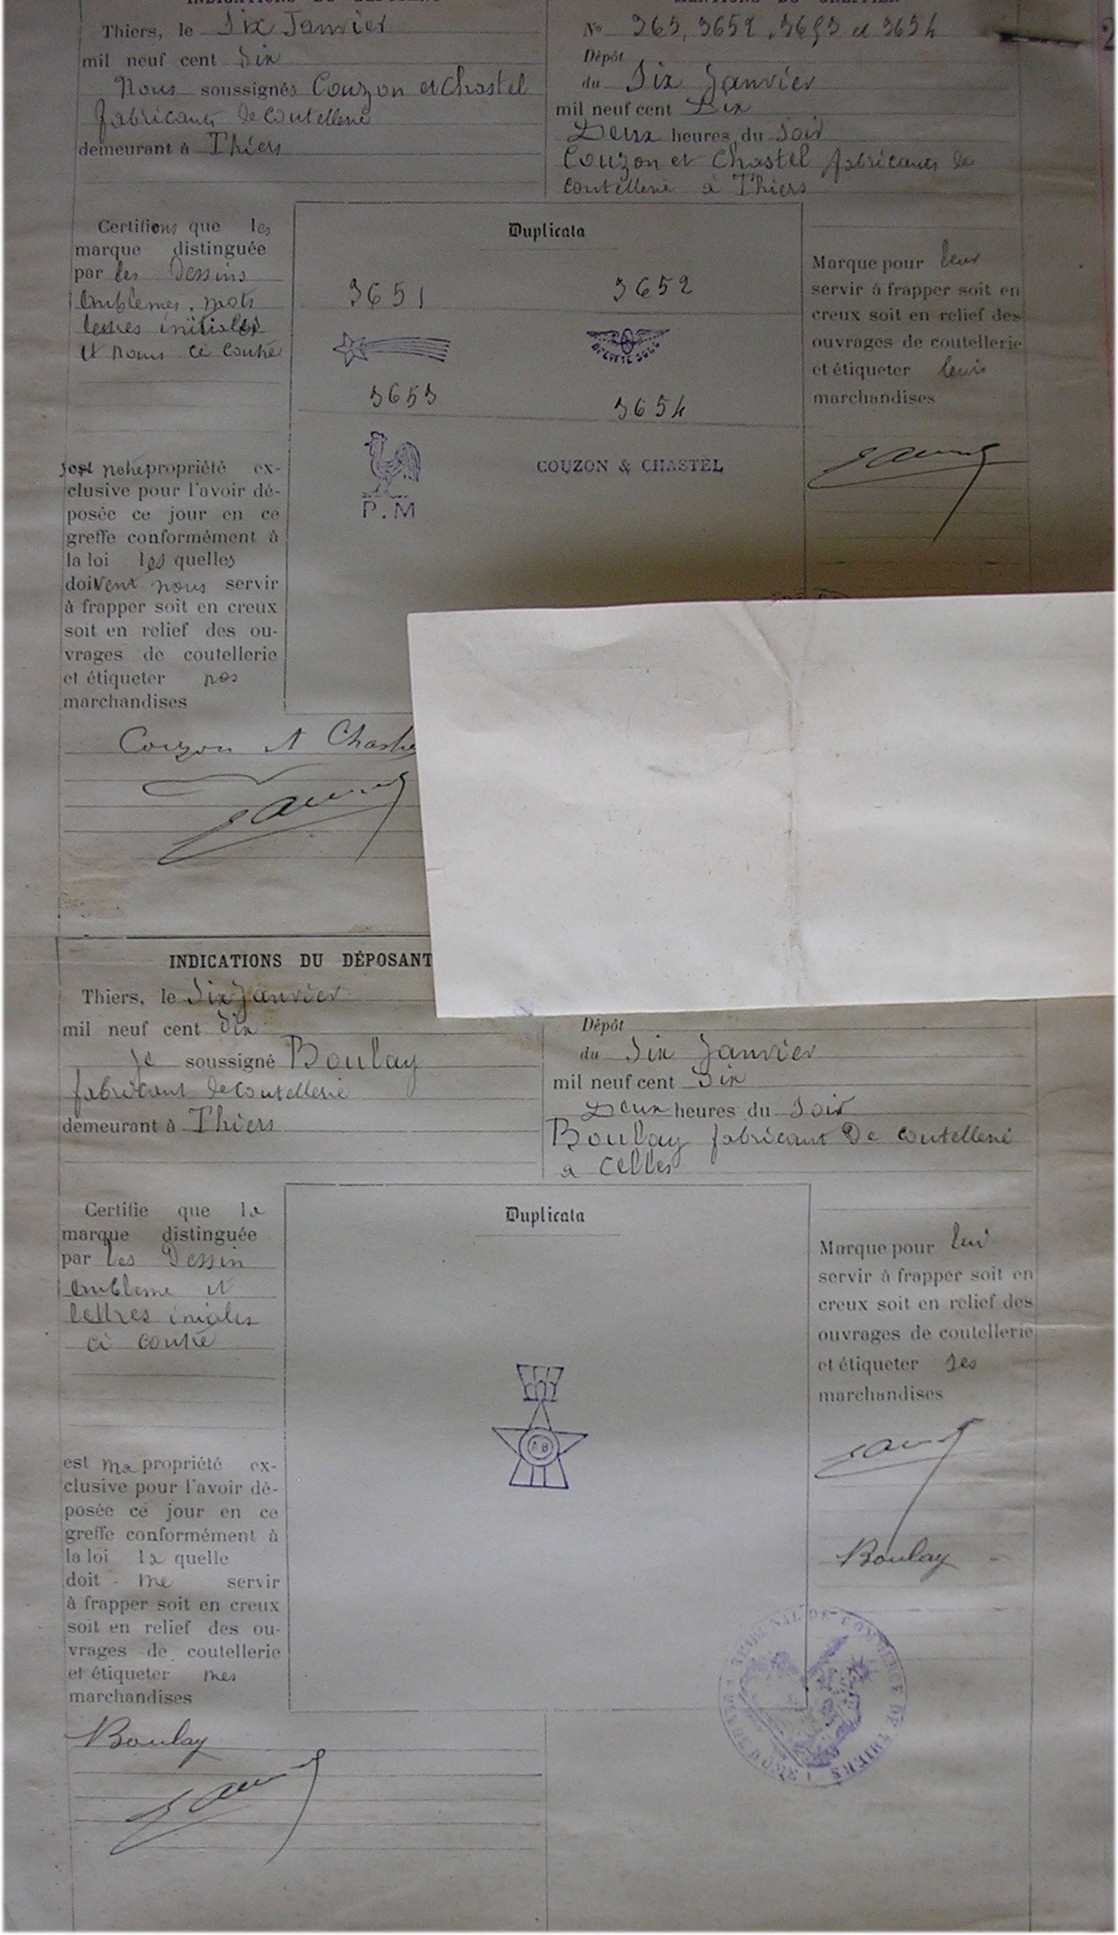 INDICATIONS DU DÉPOSANT
Thiers, le Six Janvier
mil neuf cent Dix
Nous soussignés Couzon et Chastel
fabricants de coutellerie
demeurant à Thiers
MENTIONS DU GREFFIER
No 365, 3652, 3653 et 3654
Dépôt
du Six Janvier
mil neuf cent Dix
Deux heures du Soir
Couzon et Chastel fabricants de
coutellerie à Thiers
Certifions que les
marque distinguée
par les Dessins
Emblemes, mots
lettres initiales
et noms ci contre
sont notre propriété ex-
clusive pour l'avoir dé-
posée ce jour en ce
greffe conformément à
la loi les quelles
doivent nous servir
à frapper soit en creux
soit en relief des ou-
vrages de coutellerie
et étiqueter nos
marchandises
Couzon et Chaste
Duplicata
3651
3652
3653
3654
P.M
COUZON & CHASTEL
Marque pour leur
servir à frapper soit en
creux soit en relief des
ouvrages de coutellerie
et étiqueter leurs
marchandises
INDICATIONS DU DÉPOSANT
Thiers, le Six Janvier
mil neuf cent Dix
Je soussigné Boulay
fabricant de coutellerie
demeurant à Thiers
Dépôt
du Six Janvier
mil neuf cent Dix
Deux heures du Soir
Boulay fabricant De coutellerie
a Celles
Certifie que la
marque distinguée
par les Dessin
embleme et
lettres iniales
ci contre
est ma propriété ex-
clusive pour l'avoir dé-
posée ce jour en ce
greffe conformément à
la loi la quelle
doit me servir
à frapper soit en creux
soit en relief des ou-
vrages de coutellerie
et étiqueter mes
marchandises
Boulay
Duplicata
AB
Marque pour lui
servir à frapper soit en
creux soit en relief des
ouvrages de coutellerie
et étiqueter ses
marchandises
Boulay
TRIBUNAL DE COMMERCE DE THIERS